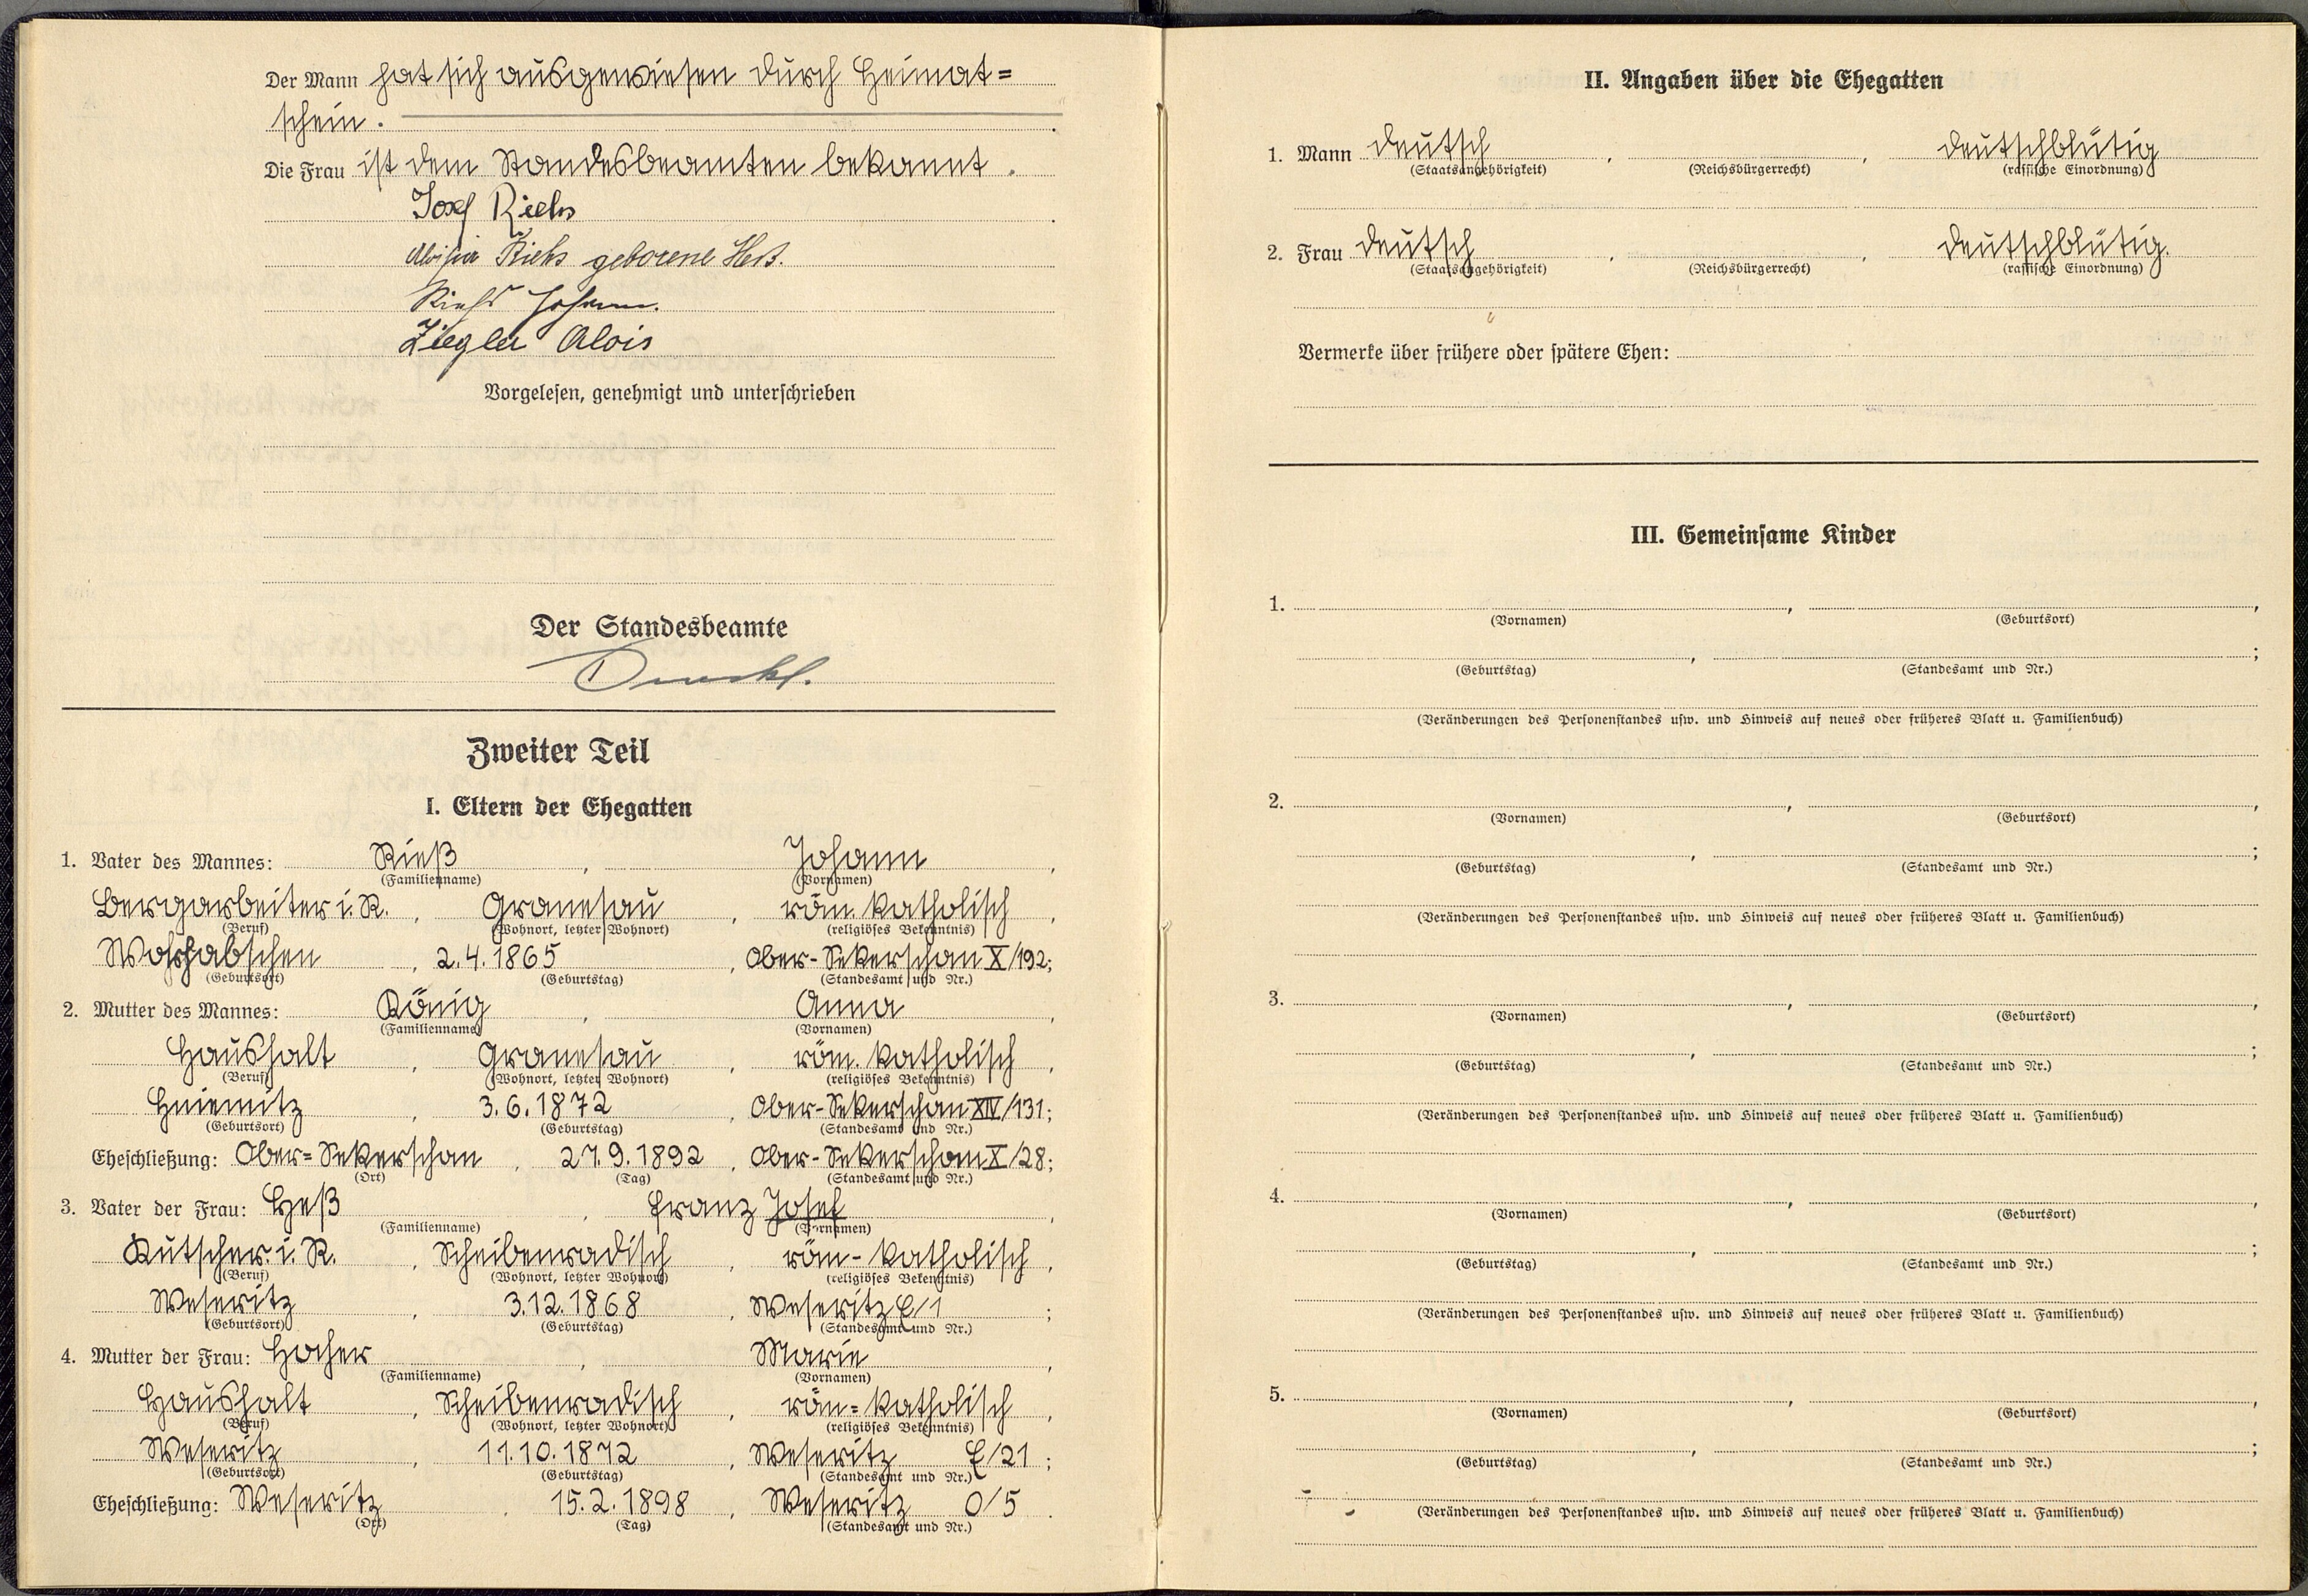 Der Mann hat sich ausgewiesen durch Heimat=
schein.
Die Frau ist dem Standesbeamten bekannt.
Josef Riehs
Aloisia Riehs geborene Heß.
Riehs Johann.
Ziegler Alois
Vorgelesen, genehmigt und unterschrieben
Der Standesbeamte
Zweiter Teil
I. Eltern der Ehegatten
1. Vater des Mannes: Rieß, Johann,
(Familienname) (Vornamen)
Bergarbeiter i. R., Granesau, röm. katholisch,
(Beruf) (Wohnort, letzter Wohnort) (religiöses Bekenntnis)
Wohrhabschen, 2.4.1865, Ober-Sekerschan X/192;
(Geburtsort) (Geburtstag) (Standesamt und Nr.)
2. Mutter des Mannes: König, Anna,
(Familienname) (Vornamen)
Haushalt, Granesau, röm. katholisch,
(Beruf) (Wohnort, letzter Wohnort) (religiöses Bekenntnis)
Hniemitz, 3.6.1872, Ober-Sekerschan XIV/131;
(Geburtsort) (Geburtstag) (Standesamt und Nr.)
Eheschließung: Ober=Sekerschan, 27.9.1892, Ober-Sekerschan X/28;
(Ort) (Tag) (Standesamt und Nr.)
3. Vater der Frau: Heß, Franz Josef,
(Familienname) (Vornamen)
Kutscher i. R., Scheibenradisch, röm-katholisch,
(Beruf) (Wohnort, letzter Wohnort) (religiöses Bekenntnis)
Weseritz, 3.12.1868, Weseritz E/1;
(Geburtsort) (Geburtstag) (Standesamt und Nr.)
4. Mutter der Frau: Hocher, Marie,
(Familienname) (Vornamen)
Haushalt, Scheibenradisch, röm=katholisch,
(Beruf) (Wohnort, letzter Wohnort) (religiöses Bekenntnis)
Weseritz, 11.10.1872, Weseritz E/21;
(Geburtsort) (Geburtstag) (Standesamt und Nr.)
Eheschließung: Weseritz, 15.2.1898, Weseritz O/5.
(Ort) (Tag) (Standesamt und Nr.)
II. Angaben über die Ehegatten
1. Mann deutsch, , deutschblütig
(Staatsangehörigkeit) (Reichsbürgerrecht) (rassische Einordnung)
2. Frau deutsch, , deutschblütig.
(Staatsangehörigkeit) (Reichsbürgerrecht) (rassische Einordnung)
Vermerke über frühere oder spätere Ehen:
III. Gemeinsame Kinder
1. , ,
(Vornamen) (Geburtsort)
, ;
(Geburtstag) (Standesamt und Nr.)
(Veränderungen des Personenstandes usw. und Hinweis auf neues oder früheres Blatt u. Familienbuch)
2. , ,
(Vornamen) (Geburtsort)
, ;
(Geburtstag) (Standesamt und Nr.)
(Veränderungen des Personenstandes usw. und Hinweis auf neues oder früheres Blatt u. Familienbuch)
3. , ,
(Vornamen) (Geburtsort)
, ;
(Geburtstag) (Standesamt und Nr.)
(Veränderungen des Personenstandes usw. und Hinweis auf neues oder früheres Blatt u. Familienbuch)
4. , ,
(Vornamen) (Geburtsort)
, ;
(Geburtstag) (Standesamt und Nr.)
(Veränderungen des Personenstandes usw. und Hinweis auf neues oder früheres Blatt u. Familienbuch)
5. , ,
(Vornamen) (Geburtsort)
, ;
(Geburtstag) (Standesamt und Nr.)
(Veränderungen des Personenstandes usw. und Hinweis auf neues oder früheres Blatt u. Familienbuch)